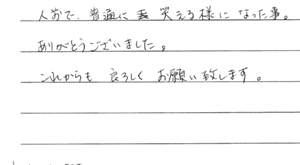 人前で、普通に 笑える様に なった事。
ありがとうございました。
これからも 良ろしく お願い致します。